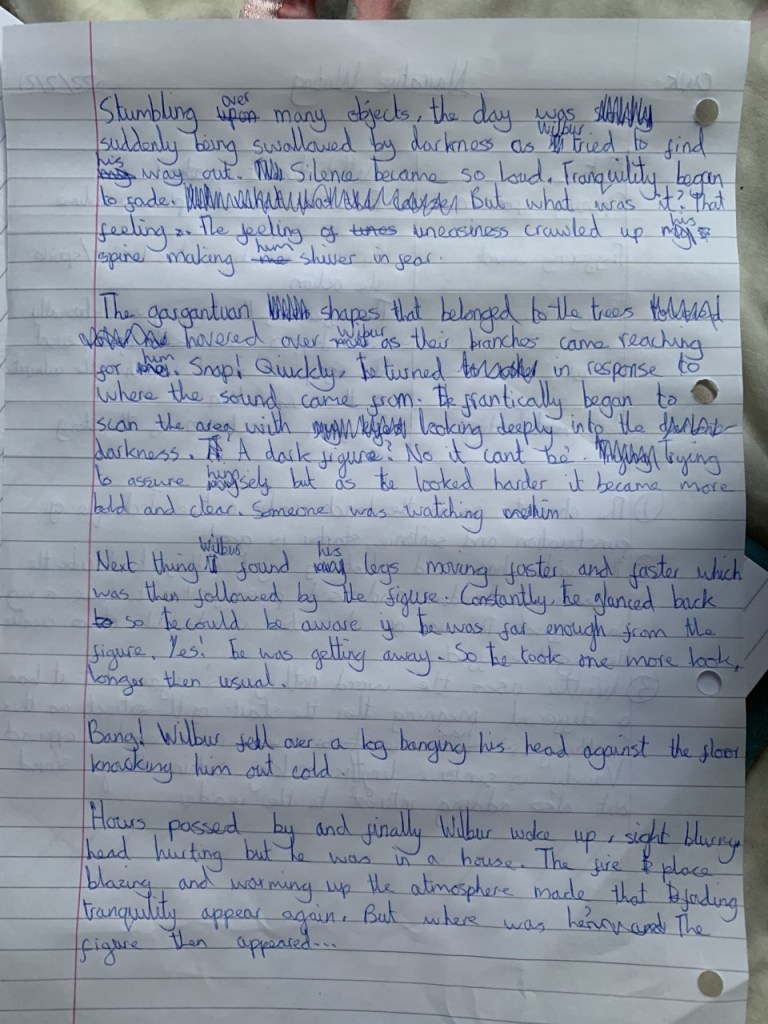 Stumbling over many objects, the day was
suddenly being swallowed by darkness as Wilbur tried to find
his way out. Silence became so loud. Tranquility began
to fade. But what was it? That
feeling... The feeling of uneasiness crawled up his
spine making him shiver in fear.
The gargantuan shapes that belonged to the trees
hovered over Wilbur as their branches came reaching
for him. Snap! Quickly, he turned in response to
where the sound came from. He frantically began to
scan the area with looking deeply into the
darkness. 'A dark figure? No it cant be'. trying
to assure himself but as he looked harder it became more
bold and clear. Someone was watching him.
Next thing Wilbur found his legs moving faster and faster which
was then followed by the figure. Constantly, he glanced back
so he could be aware if he was far enough from the
figure. Yes! he was getting away. So he took one more look,
longer then usual.
Bang! Wilbur fell over a log banging his head against the floor
knocking him out cold.
Hours passed by and finally Wilbur woke up, sight blurry
head hurting but he was in a house. The fire place
blazing and warming up the atmosphere made that fading
tranquility appear again. But where was he? The
figure then appeared...